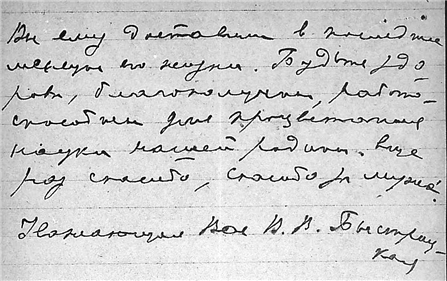 Вы ему доставили в последние
минуты его жизни. Будьте здо
ровы, благополучны, работо-
способны для процветания
науки нашей родины. Еще
раз спасибо, спасибо за
Уважающая Вас В. В. Быстриц-
кая